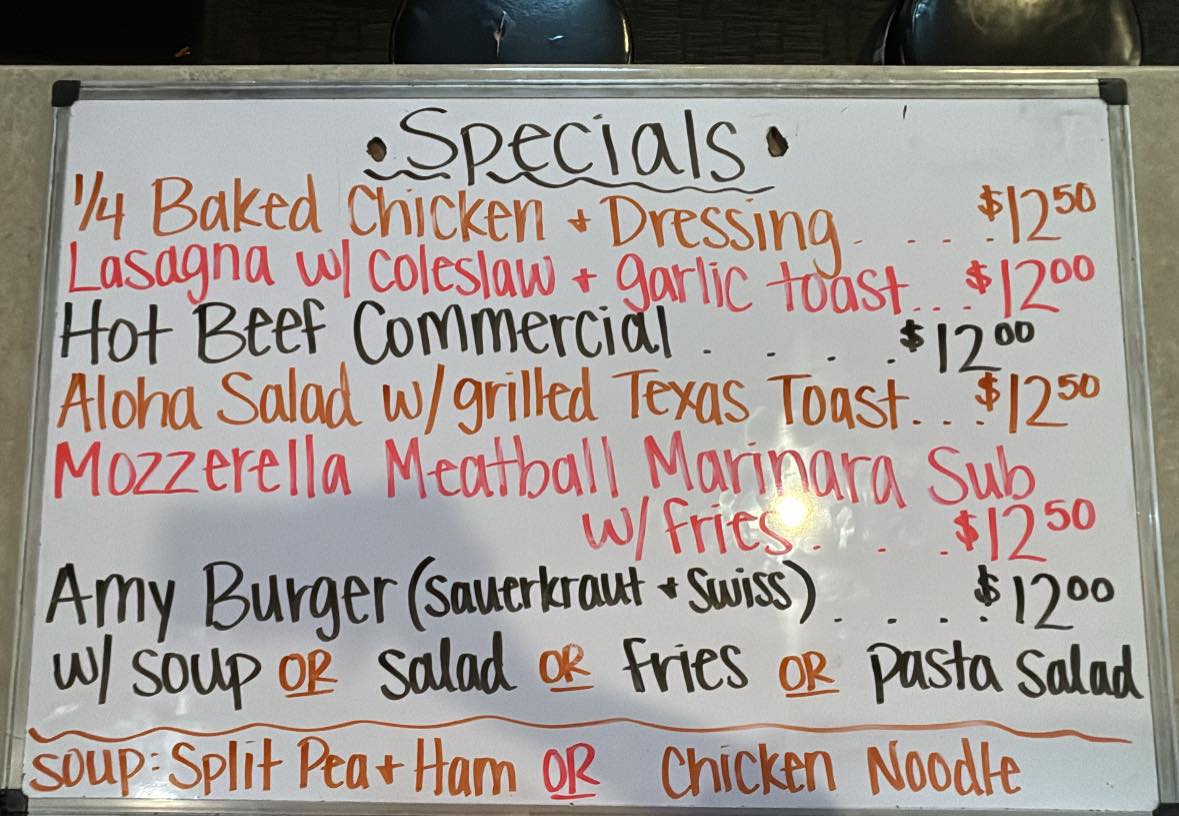 • Specials •
1/4 Baked Chicken + Dressing . . . . $12.50
Lasagna w/ coleslaw + garlic toast... $12.00
Hot Beef Commercial . . . . . $12.00
Aloha Salad w/ grilled Texas Toast. . . $12.50
Mozzerella Meatball Marinara Sub
w/ fries. . . . $12.50
Amy Burger (sauerkraut + Swiss) . . . . . $12.00
w/ soup OR salad OR fries OR pasta salad
soup: Split Pea + Ham OR Chicken Noodle